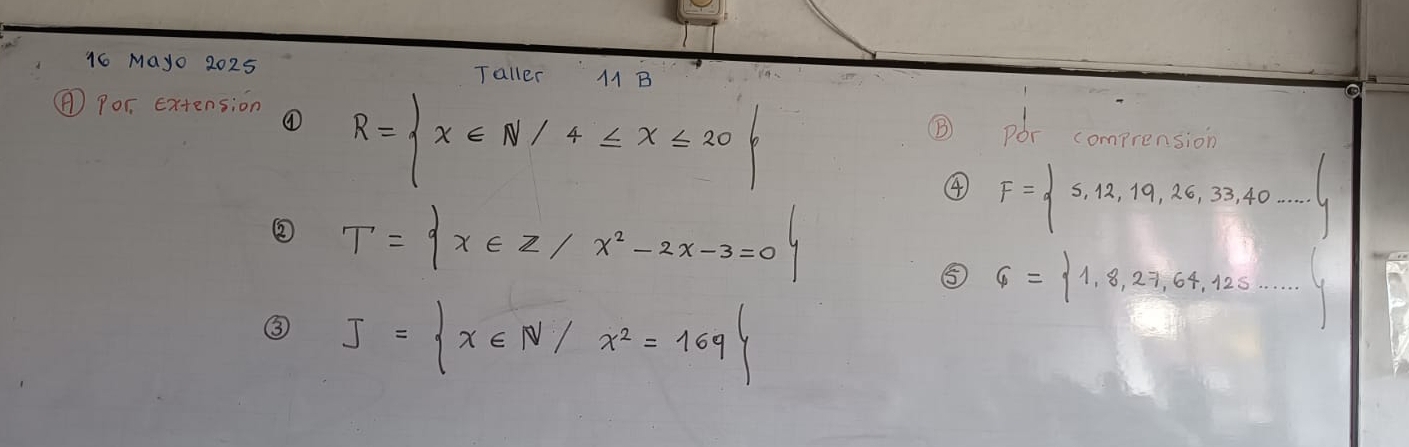 16 Mayo 2025
Taller 11 B
Ⓐ Por Extensión
① R = { x ∈ ℕ / 4 ≤ x ≤ 20 }
② T = { x ∈ Z / x² - 2x - 3 = 0 }
③ J = { x ∈ ℕ / x² = 169 }
Ⓑ Por comprensión
④ F = { 5, 12, 19, 26, 33, 40 ...... }
⑤ G = { 1, 8, 27, 64, 125 ...... }